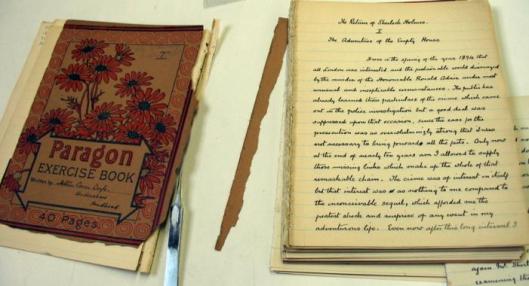 I
Paragon
EXERCISE BOOK
Written by Arthur Conan Doyle.
Undershaw
Hindhead
40 Pages.
The Return of Sherlock Holmes.
I
The Adventure of the Empty House
It was in the spring of the year 1894 that
all London was interested and the fashionable world dismayed
by the murder of the Honourable Ronald Adair under most
unusual and inexplicable circumstances. The public has
already learned those particulars of the crime which came
out in the police investigation but a good deal was
suppressed upon that occasion, since the case for the
prosecution was so overwhelmingly strong that it was
not necessary to bring forward all the facts. Only now
at the end of nearly ten years am I allowed to supply
those missing links which make up the whole of that
remarkable chain. The crime was of interest in itself
but that interest was as nothing to me compared to
the inconceivable sequel, which afforded me the
greatest shock and surprise of any event in my
adventurous life. Even now after this long interval I
again
examining